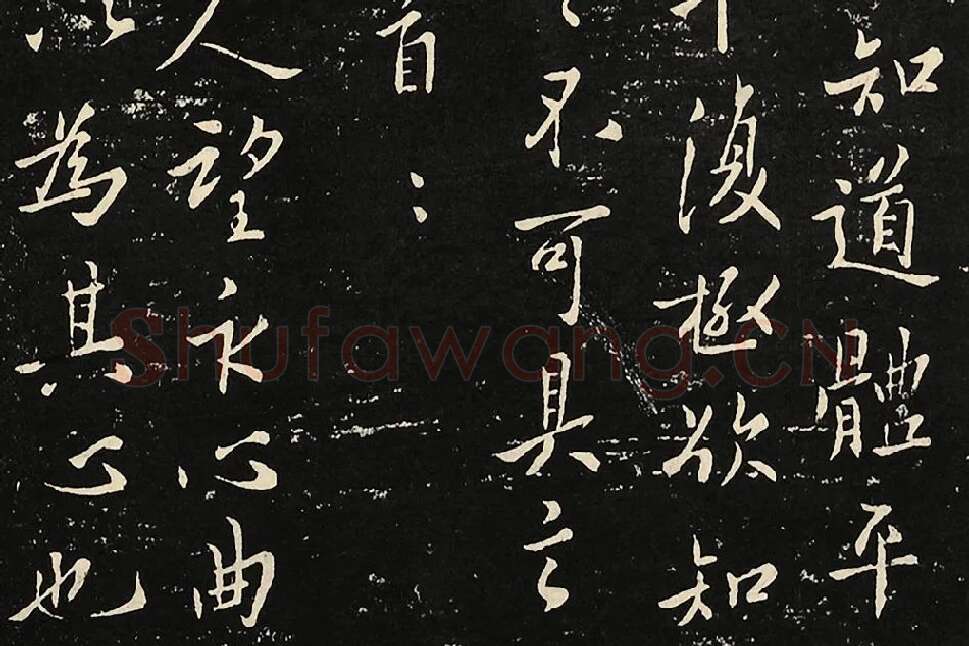 知道體平
復極欲知
不可具言
首:
人望永心曲
以為其也
Shufawang.CN